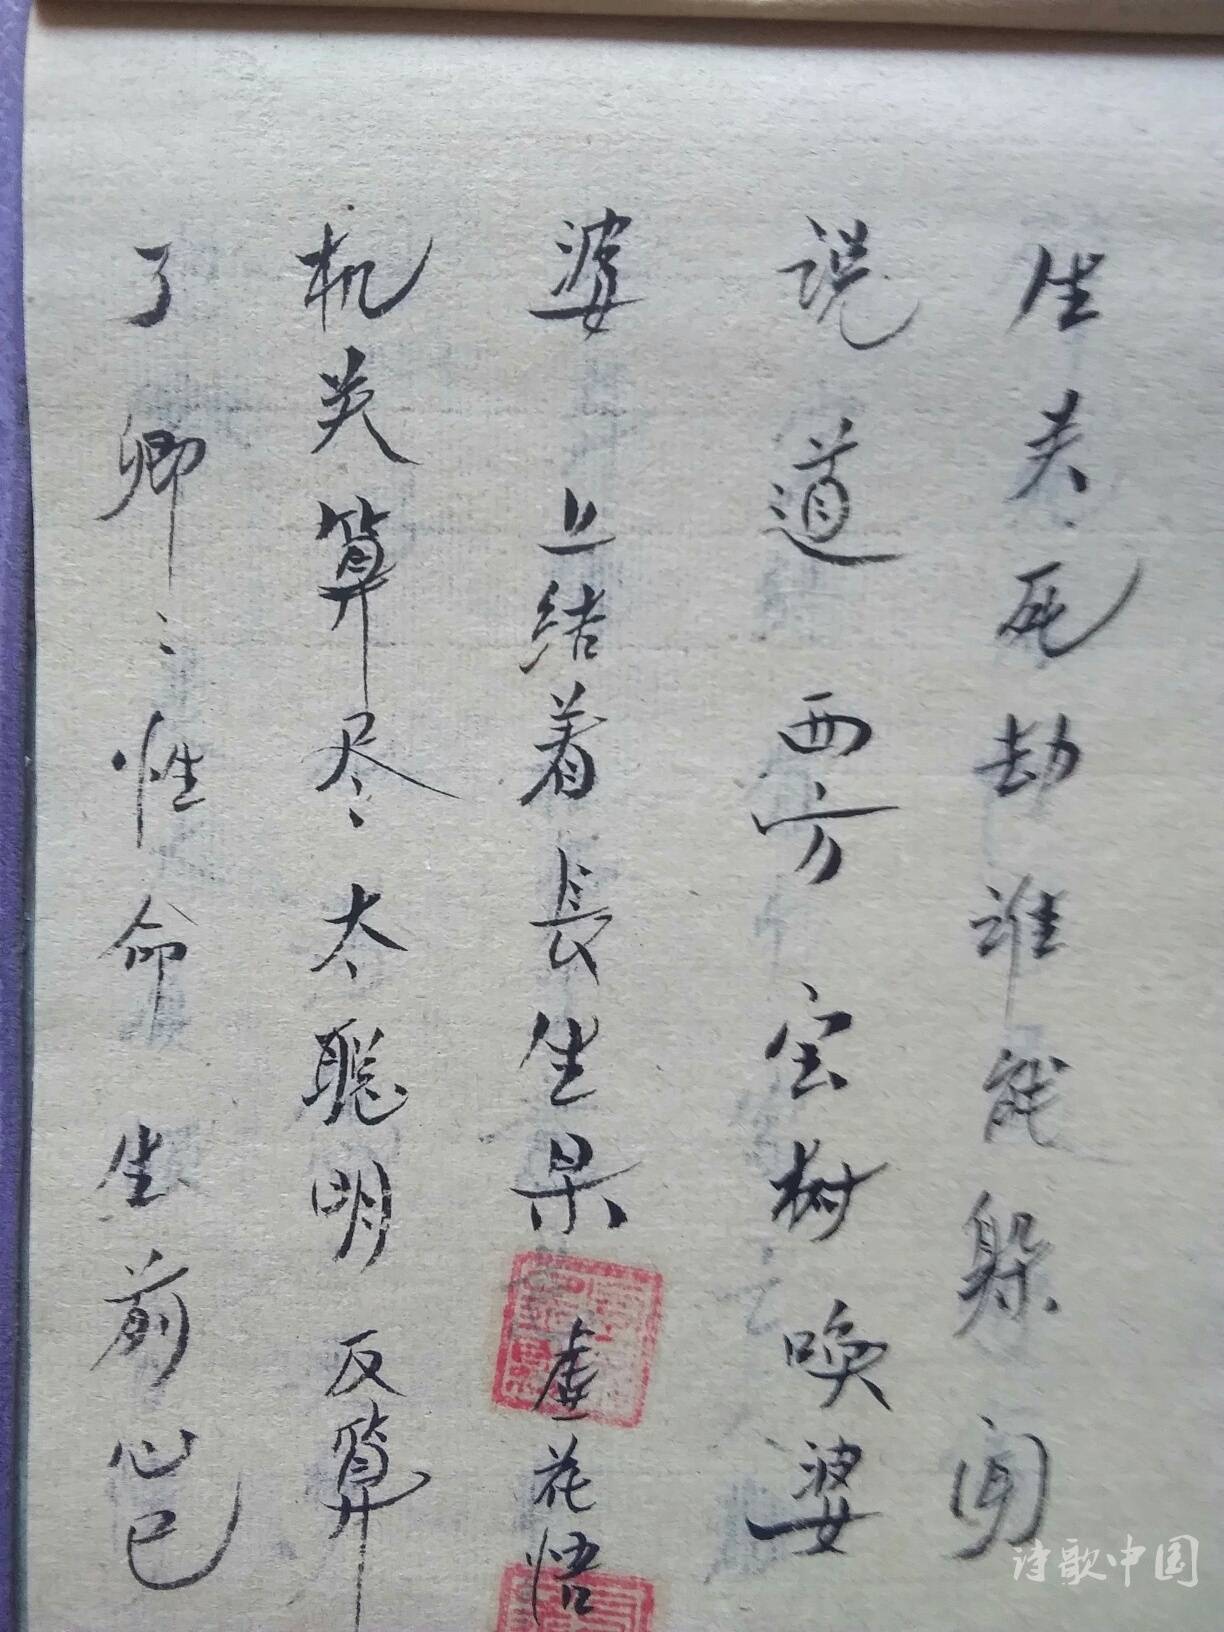 生关死劫谁能躲闻
说道西方宝树唤婆
婆上结着長生果虚花悟
机关算尽太聪明反算
了卿卿性命生前心已
诗歌中国